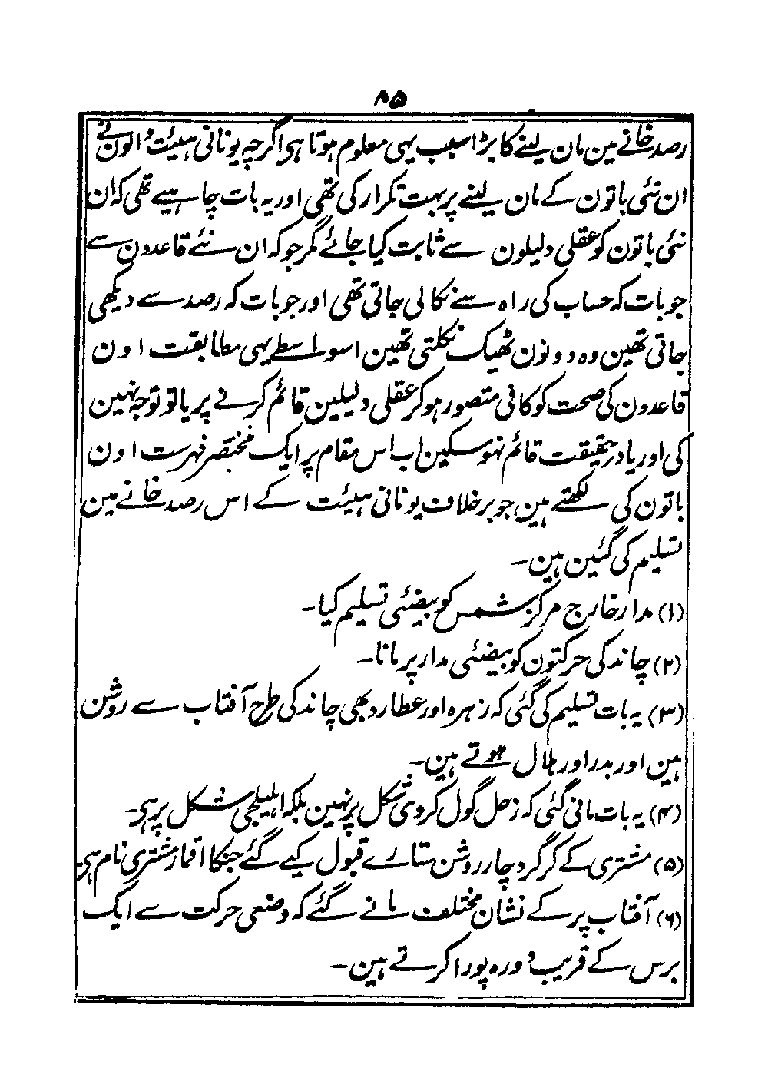 ۸۵
رصد خانے مین مان لینے کا بڑا سبب یہی معلوم ہوتا ہی اگرچہ یونانی ہیئت والون نے
ان نئی باتون کے مان لینے پر بہت تکرار کی تھی اور یہ بات چاہیے تھی کہ ان
نئی باتون کو عقلی دلیلون سے ثابت کیا جائے مگر جو کہ ان نئے قاعدون سے
جو بات کہ حساب کی راہ سے نکالی جاتی تھی اور جو بات کہ رصد سے دیکھی
جاتی تھین وہ دونون ٹھیک نکلتی تھین اسواسطے یہی مطابقت اون
قاعدون کی صحت کو کافی متصور ہو کر عقلی دلیلین قائم کرنے پر یا تو توجہ نہین
کی اور یا در حقیقت قائم نہو سکین اب اس مقام پر ایک مختصر فہرست اون
باتون کی لکھتے ہین جو برخلاف یونانی ہیئت کے اس رصد خانے مین
تسلیم کی گئین ہین۔
(۱) مدار خارج مرکز شمس کو بیضئی تسلیم کیا۔
(۲) چاند کی حرکتون کو بیضئی مدار پر مانا۔
(۳) یہ بات تسلیم کی گئی کہ زہرہ اور عطارد بھی چاند کی طرح آفتاب سے روشن
ہین اور بدر اور ہلال ہوتے ہین۔
(۴) یہ بات مانی گئی کہ زحل گول کروی شکل پر نہین بلکہ اہلیلجی شکل پر ہی۔
(۵) مشتری کے گرد گرد چار روشن ستارے قبول کیے گئے جنکا اقمار مشتری نام ہی
(۶) آفتاب پر کے نشان مختلف مانے گئے کہ وضعی حرکت سے ایک
برس کے قریب دورہ پورا کرتے ہین۔